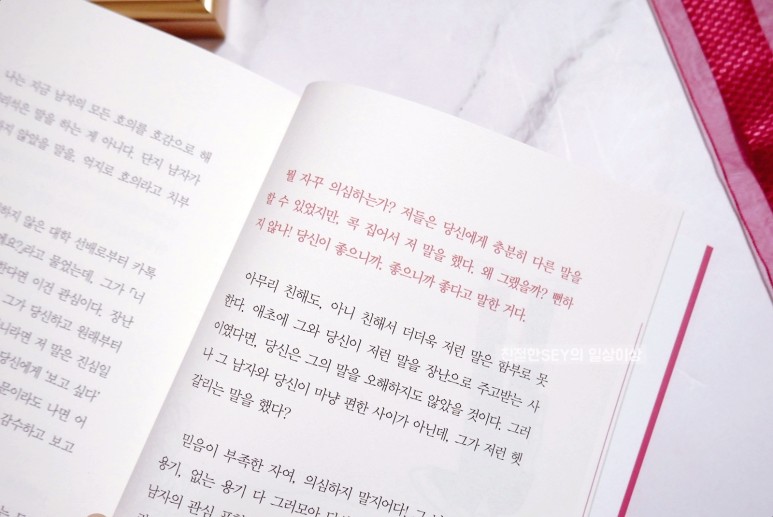 나는 지금 남자의 모든 호의를 호감으로 해
말을 하는 게 아니다. 단지 남자가
않았을 말을, 억지로 호의라고 치부
않은 대학 선배로부터 카톡
물었는데, 그가 「너
이건 관심이다. 장난
그가 당신하고 원래부터
저 말은 진심일
당신에게 '보고 싶다'
나면 어
감수하고 보고
뭘 자꾸 의심하는가? 저들은 당신에게 충분히 다른 말을
할 수 있었지만, 콕 집어서 저 말을 했다. 왜 그랬을까? 뻔하
지 않나! 당신이 좋으니까. 좋으니까 좋다고 말한 거다.
아무리 친해도, 아니 친해서 더더욱 저런 말은 함부로 못
한다. 애초에 그와 당신이 저런 말을 장난으로 주고받는 사
이였다면, 당신은 그의 말을 오해하지도 않았을 것이다. 그러
나 그 남자와 당신이 마냥 편한 사이가 아닌데, 그가 저런 헷
갈리는 말을 했다?
믿음이 부족한 자여, 의심하지 말지어다! 그
용기, 없는 용기 다 그러모아
남자의 관심
친절한SEY의 일상이상